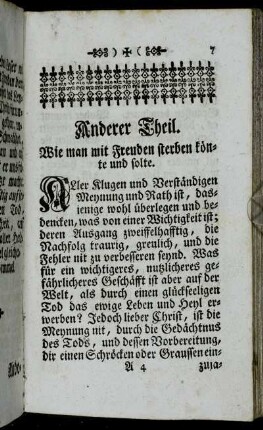 ) ✠ ( 7
Anderer Theil.
Wie man mit Freuden sterben kön-
te und solte.
ALler Klugen und Verständigen
Meynung und Rath ist, das-
jenige wohl überlegen und be-
dencken, was von einer Wichtigkeit ist;
deren Ausgang zweiffelhafftig, die
Nachfolg traurig, greulich, und die
Fehler nit zu verbesseren seynd. Was
für ein wichtigeres, nutzlicheres ge-
fährlicheres Geschäfft ist aber auf der
Welt, als durch einen glückseeligen
Tod das ewige Leben und Heyl er-
werben? Jedoch lieber Christ, ist die
Meynung nit, durch die Gedächtnus
des Tods, und dessen Vorbereitung,
dir einen Schröcken oder Graussen ein-
A 4 zuja-